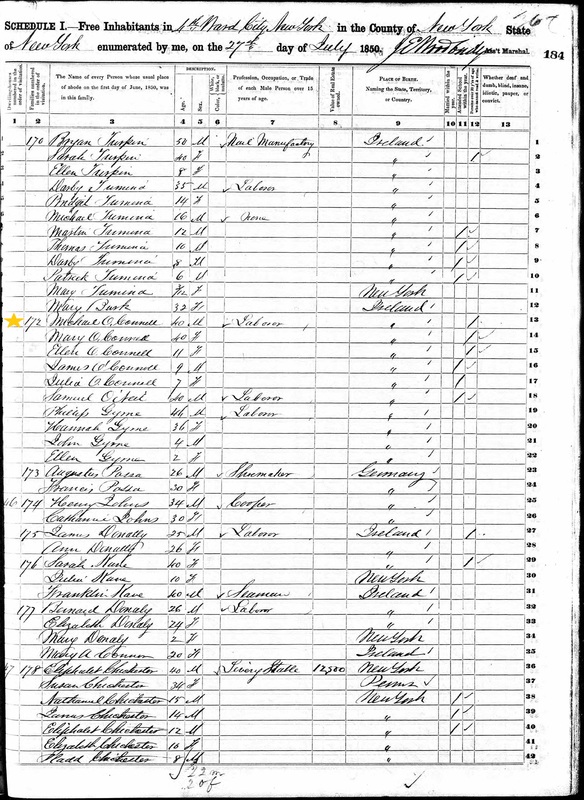 SCHEDULE I.—Free Inhabitants in 4th Ward City New York in the County of New York State
of New York enumerated by me, on the 27th day of July 1850. Ass't Marshal.
184
DESCRIPTION.
Dwelling-houses numbered in the order of visitation.
Families numbered in the order of visitation.
The Name of every Person whose usual place of abode on the first day of June, 1850, was in this family.
Age.
Sex.
Profession, Occupation, or Trade of each Male Person over 15 years of age.
Value of Real Estate owned.
PLACE OF BIRTH. Naming the State, Territory, or Country.
Married within the year.
Whether deaf and dumb, blind, insane, idiotic, pauper, or convict.
1 2 3 4 5 6 7 8 9 10 11 12 13
170 Bryan Turpin 50 M Ireland 1
Sarah Turpin 40 F " 2
Ellen Turpin 8 F " 3
Darby Tumina 35 M Laborer " 4
Bridget Tumina 14 F " 5
Michael Tumina 16 M None " 6
Martin Tumina 12 M " 7
Thomas Tumina 10 M " 8
Darby Tumina 8 M " 9
Patrick Tumina 6 M " 10
Mary Tumina F New York 11
Mary Burk 32 F Ireland 12
172 Michael O'Connell 40 M Laborer " 13
Mary O'Connell 40 F " 14
Ellen O'Connell 11 F " 15
James O'Connell 9 M " 16
Julia O'Connell 7 F " 17
Samuel 40 M Laborer " 18
Philip Gyme 46 M Laborer " 19
Hannah Gyme 36 F " 20
John Gyme 4 M " 21
Ellen Gyme 2 F " 22
173 Augustus Possa 26 M Shoemaker Germany 23
Francis Possa 30 F " 24
174 Henry Johns 34 M Cooper " 25
Catharine Johns 30 F " 26
175 James Donatty 25 M Laborer Ireland 27
Ann Donatty 26 F " 28
176 Sarah 40 F " 29
10 F New York 30
Franklin 40 M Seaman Ireland 31
177 Bernard Donaly 26 M Laborer " 32
Elizabeth Donaly 24 F " 33
Mary Donaly 2 F New York 34
Mary A Connor 20 F Ireland 35
47 178 Eliphalet Chichester 40 M Livery Stable 12,500 New York 36
Susan Chichester 34 F 37
Nathaniel Chichester 15 M New York 38
James Chichester 14 M " 39
Eliphalet Chichester 12 M " 40
Elizabeth Chichester 10 F " 41
Chichester 8 M " 42
22 m
20 f